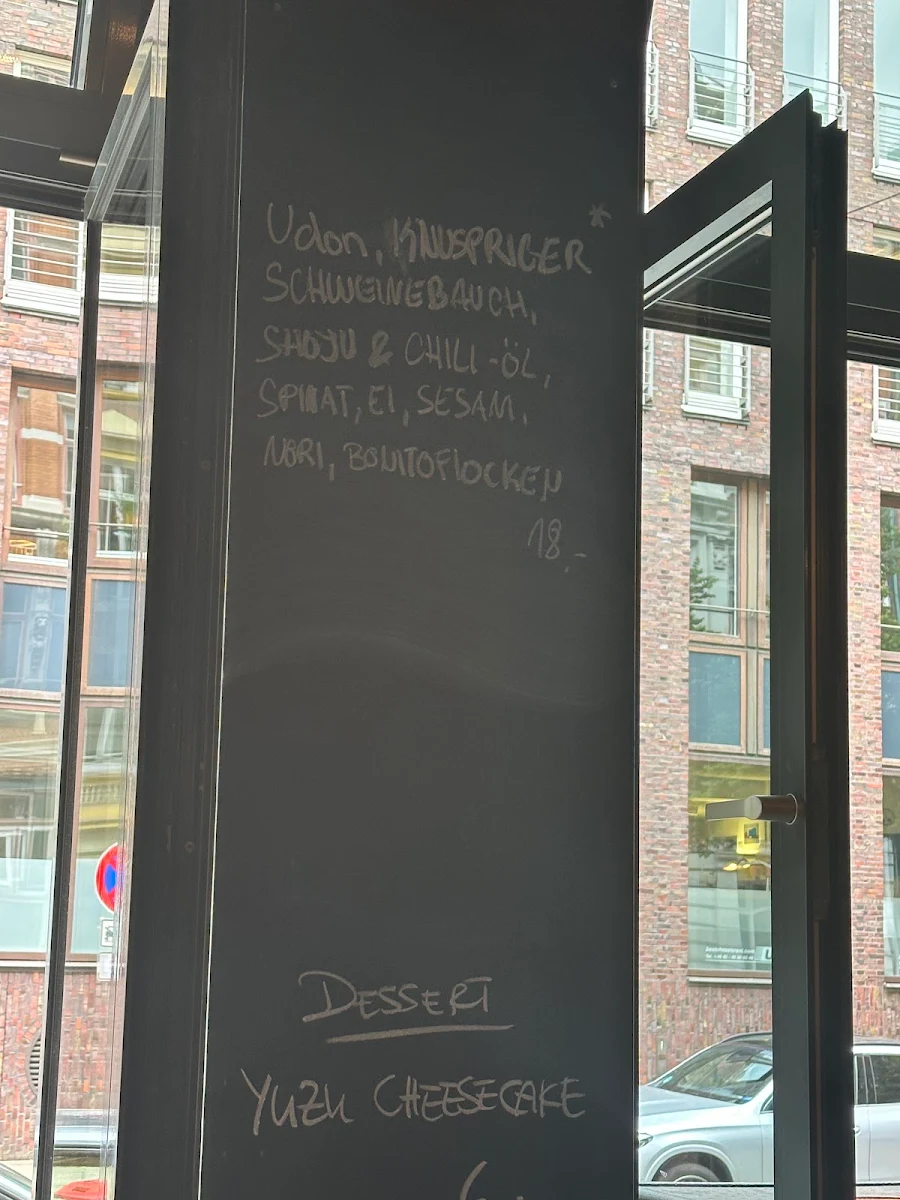 Udon, KNUSPRIGER*
SCHWEINEBAUCH,
SHOJU & CHILI-ÖL,
SPINAT, EI, SESAM,
NORI, BONITOFLOCKEN
18,-
DESSERT
YUZU CHEESECAKE